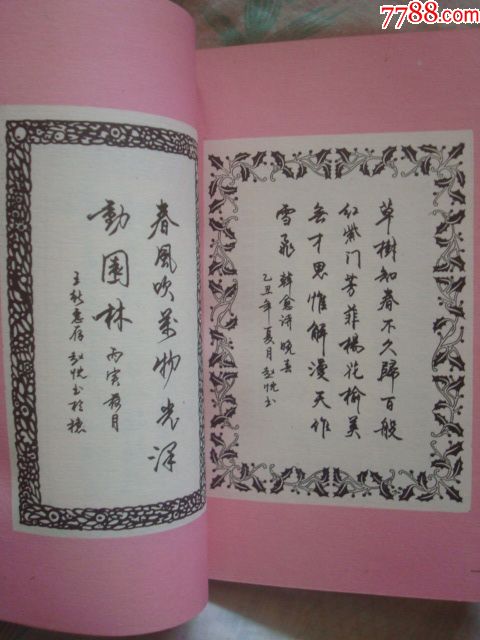 7788.com
草樹知春不久歸百般
红紫鬥芳菲楊花榆荚
無才思惟解漫天作
雪飛 韓愈詩晚春
乙丑年夏月赵书
春風吹萬物光澤
動園林 丙寅月
王惠存赵书於穗